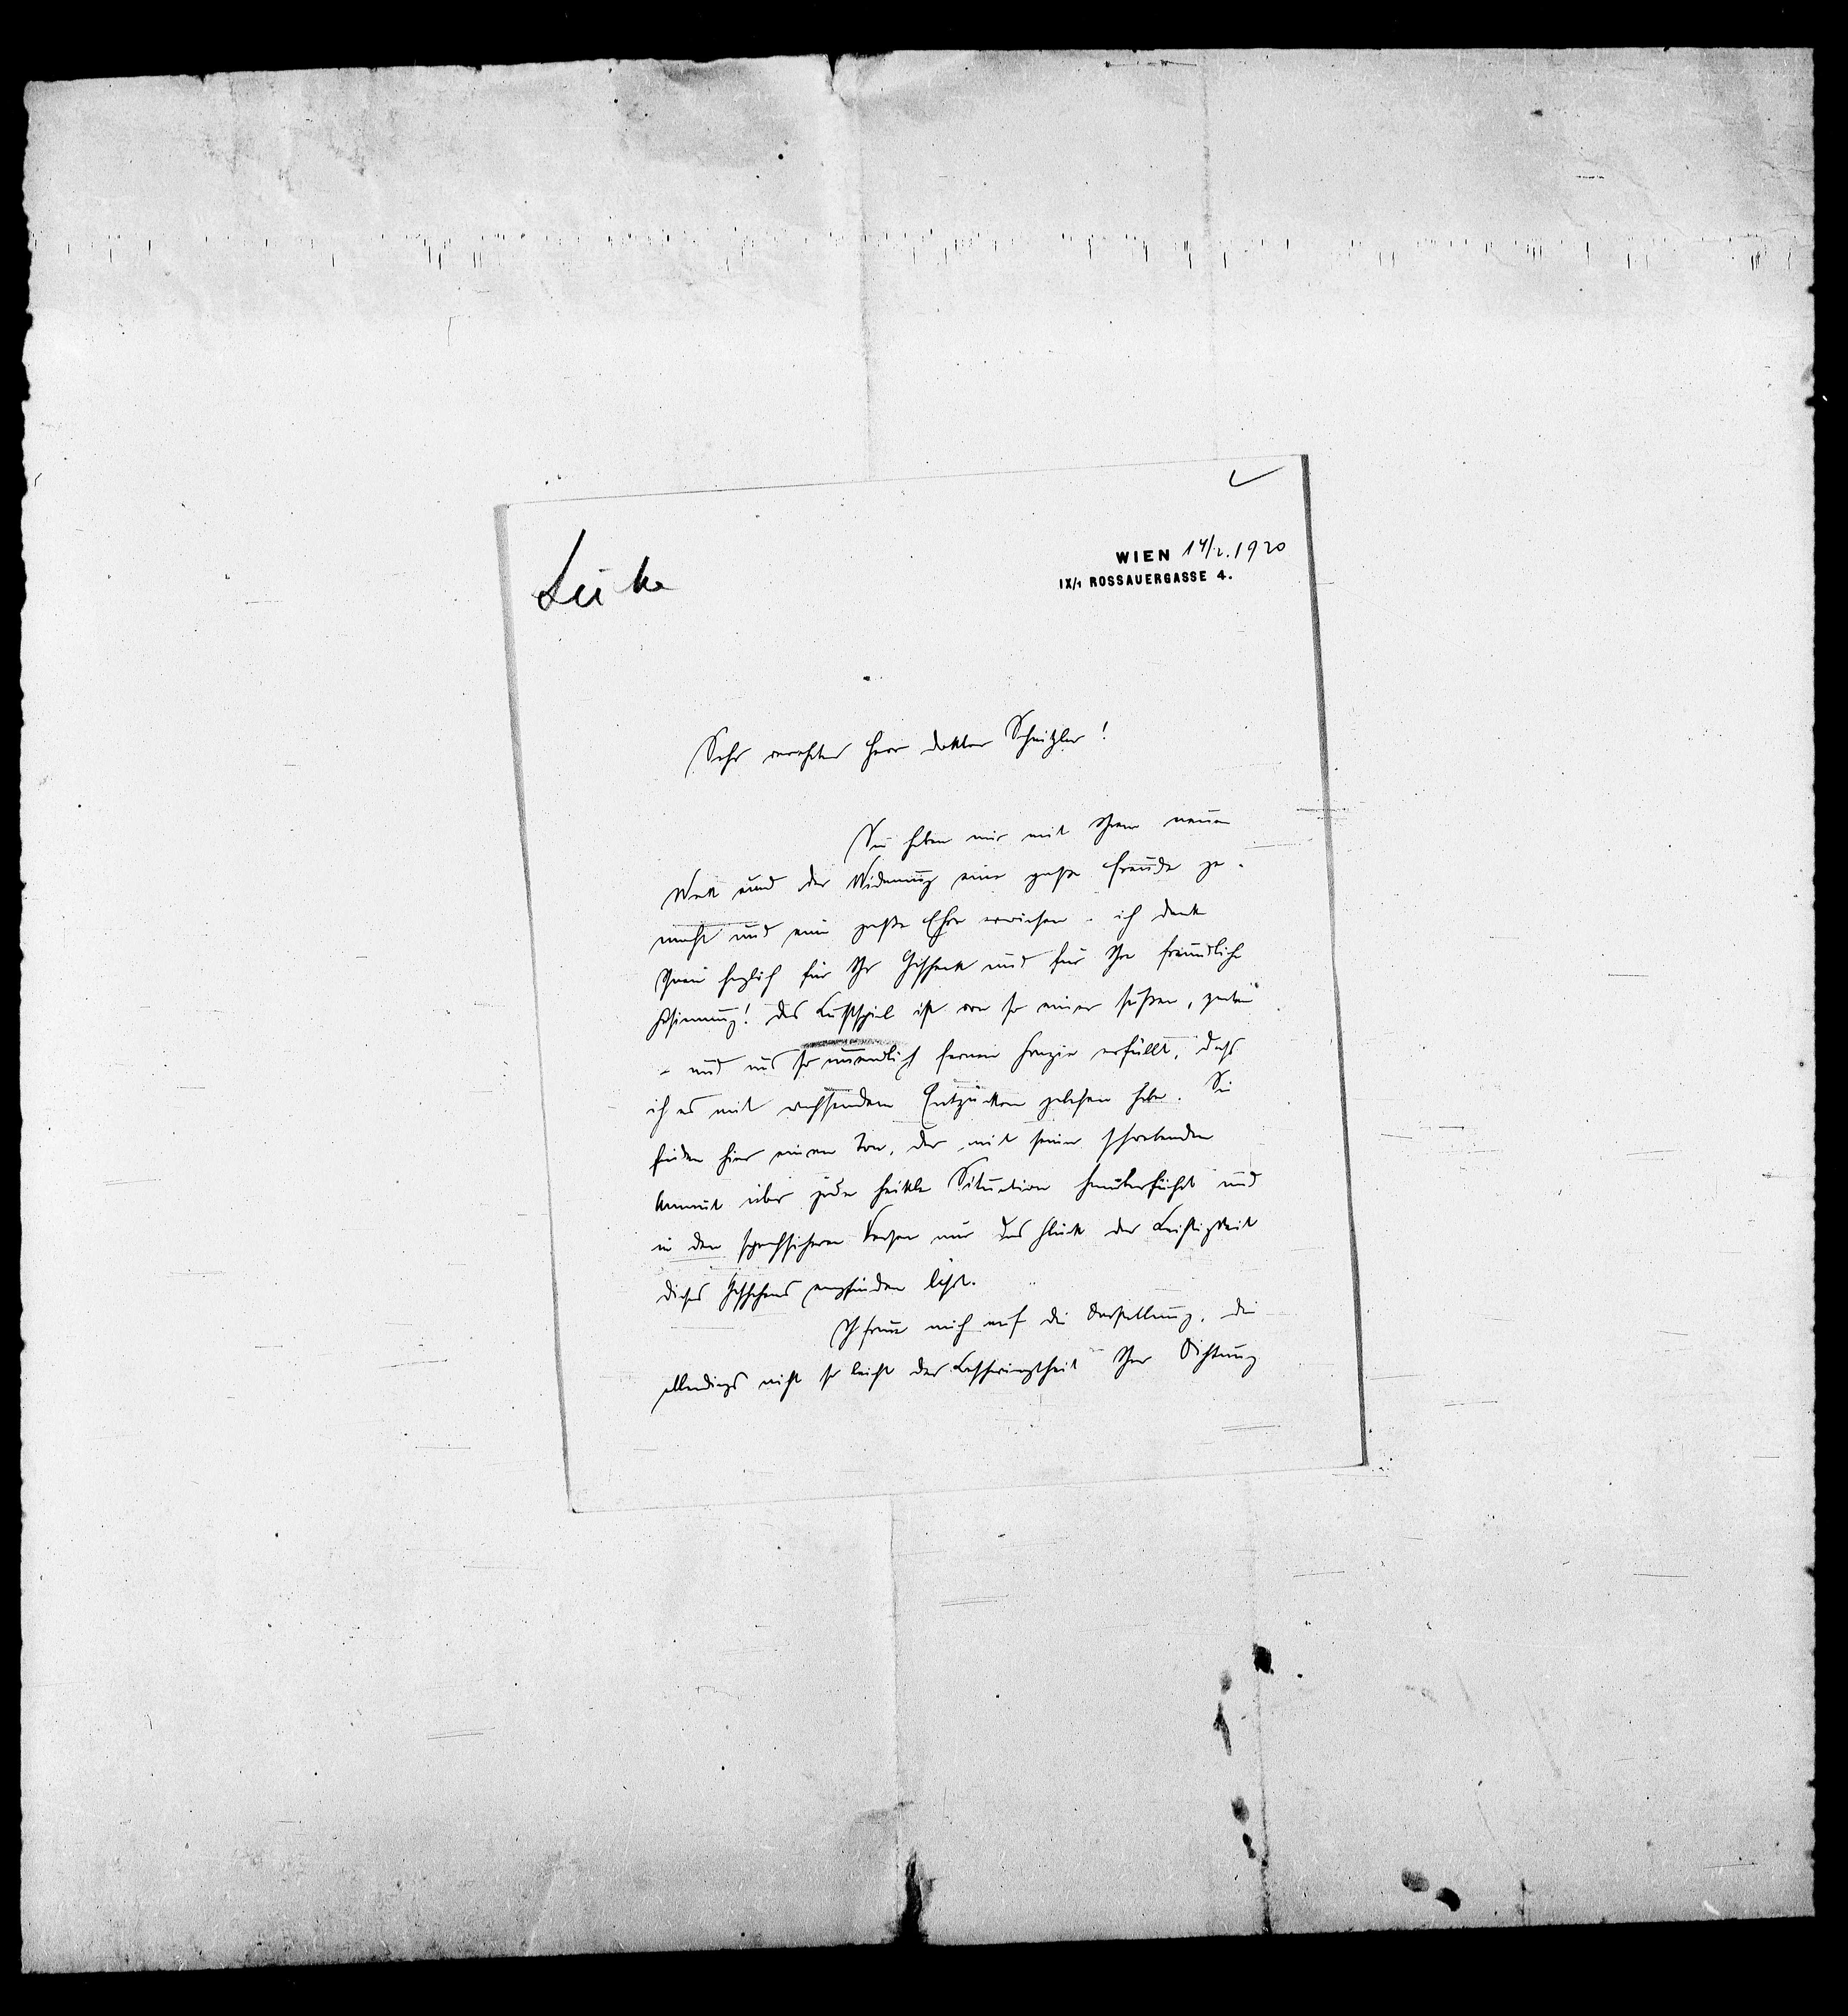 WIEN 14/2. 1920
IX/1 ROSSAUERGASSE 4.
Sehr verehrter Herr Doktor Schnitzler!
Sie haben mir mit Ihrem neuen
Werk und der Widmung eine große Freude ge-
macht und eine große Ehre erwiesen – ich danke
Ihnen herzlich für Ihr Geschenk und für Ihre freundliche
Gesinnung! Das Lustspiel ist von so einer süßen,
– und uns so unendlich fernen Grazie erfüllt, dass
ich es mit wachsendem Entzücken gelesen habe. Sie
finden hier einen Ton, der mit seiner schwebenden
Anmut über jede heikle Situation hinüberführt und
in den Versen nur das Glück der Leichtigkeit
dieses Geschehens empfinden lässt.
Ich freue mich auf die Darstellung, die
allerdings nicht so leicht der Beschwingtheit Ihrer Dichtung